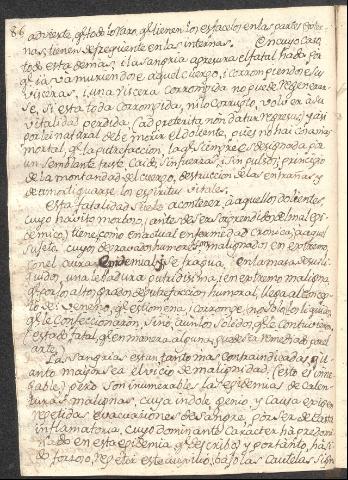 86
advierte, qe todo lo raro, qe tienen los en las partes exter-
nas, tienen de frequente en las internas. En cuyo caso
todo esta demas; i la sangria apresura el fatal hado, por
qe ia va muriendo e aquel cuerpo, i corrompiendose su
visceras, i una viscera corrompida no puede regenerar-
se, si esta toda corrompida, ni lo corrupto, volvera a su
vitalidad perdida, (ad preterita non datur regresus) y asi
por lei natural debe morir el doliente, pues no hai
mortal, qe la putrefaccion, la qe siempre es designada por
un semblante triste, caido, sin fuerzas, i sin pulsos; principio
de la mortandad del cuerpo, destruccion de las entrañas, y
de los espiritus vitales.
Esta fatalidad suele acontecer a aquellos dolientes,
cuyo havito morboso, antes de ser sorprendido de lo
demico, tiene como en actual enfermedad cronica, a aquel
sujeto, cuyos depravados humores, son malignados en extremo,
con el aura epidemial, se fragua, en la masa de sus li-
quidos, una lebadura putridisima, i en extremo maligna,
qe por lo alto grado de putrefaccion humoral, llega al concep-
to de veneno, qe i corrompe, no solo los liquidos,
qe le confeccionaron, sino aun los solidos, qe le contuvieron,
(estado fatal, qe en manera alguna puede ser remediado por el
arte.)
Las sangrias estan tanto mas contraindicadas, qu-
anto mayor sea el vicio de malignidad, (esto es inne-
gable) pero son innumerables las epidemias de calen-
turas malignas, cuya indole, genio, y causa exigen
repetidas evacuaciones de sangre, por ser de casta
inflamatoria, cuyo dominante caracter ha predomi-
nado en esta epidemia qe describo; y por tanto, ha si-
do forzoso, repetir este auxilio, bajo las cautelas sign